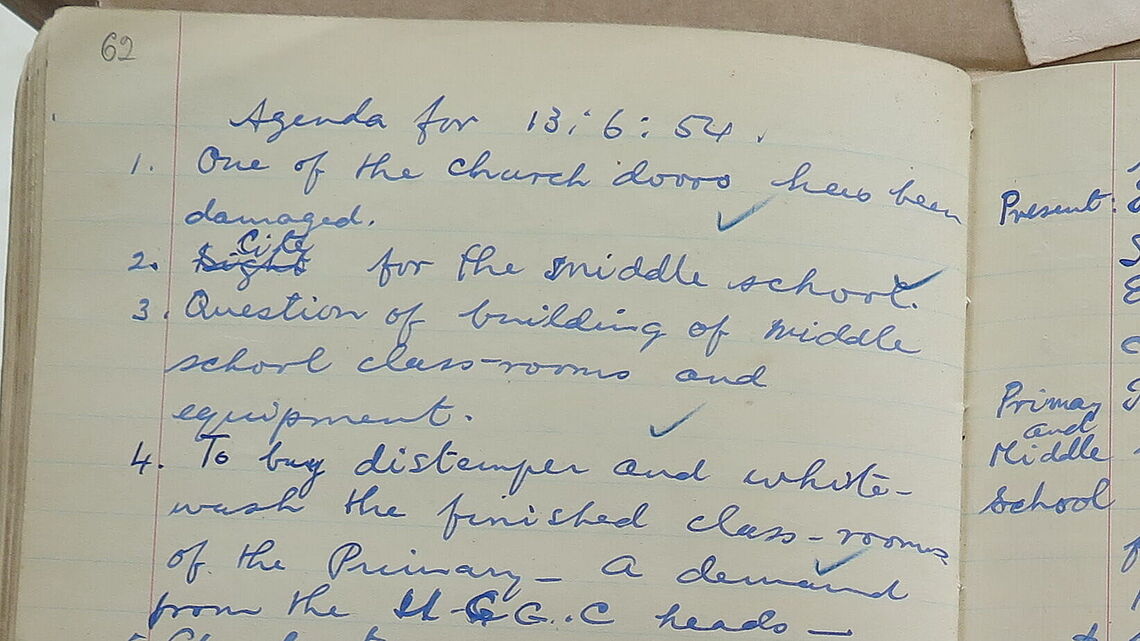 62
Agenda for 13:6:54.
1. One of the church doors has been
damaged.
2. Cite for the middle school.
3. Question of building of middle
school class-rooms and
equipment.
4. To buy distemper and white-
wash the finished class-rooms
of the Primary – A demand
from the G.C heads –
Present:
Primary
and
Middle
School